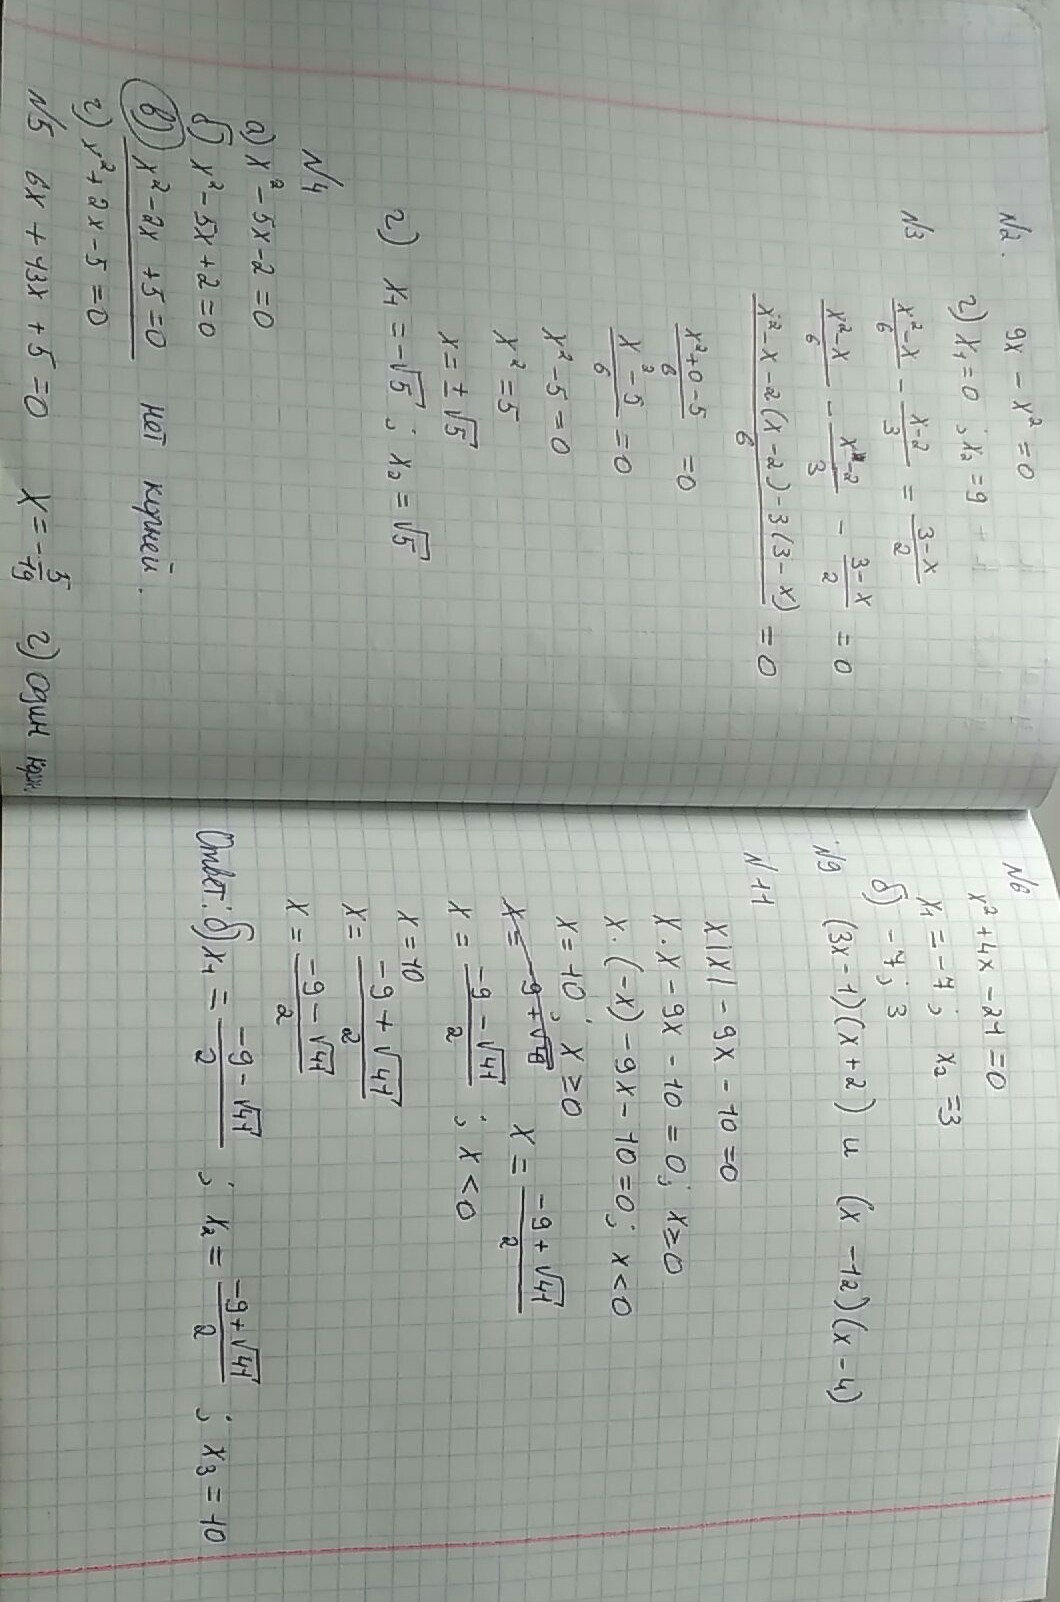 №2. 9x - x² = 0
г) x₁ = 0 ; x₂ = 9
№3 (x² - x)/6 - (x-2)/3 = (3-x)/2
(x² - x)/6 - (x-2)/3 - (3-x)/2 = 0
(x² - x - 2(x-2) - 3(3-x))/6 = 0
(x² + 0 - 5)/6 = 0
(x² - 5)/6 = 0
x² - 5 = 0
x² = 5
x = ±√5
г) x₁ = -√5 ; x₂ = √5
№4
а) x² - 5x - 2 = 0
б) x² - 5x + 2 = 0
в) x² - 2x + 5 = 0 нет корней.
г) x² + 2x - 5 = 0
№5 6x + 13x + 5 = 0 x = -5/19 г) один корн.
№6
x² + 4x - 21 = 0
x₁ = -7 ; x₂ = 3
б) -7; 3
№9 (3x-1)(x+2) и (x-12)(x-4)
№11
x|x| - 9x - 10 = 0
x·x - 9x - 10 = 0; x ≥ 0
x·(-x) - 9x - 10 = 0; x < 0
x = 10; x ≥ 0
x = (-9+√41)/2
x = (-9-√41)/2 ; x < 0
x = 10
x = (-9+√41)/2
x = (-9-√41)/2
Ответ: б) x₁ = (-9-√41)/2 ; x₂ = (-9+√41)/2 ; x₃ = 10